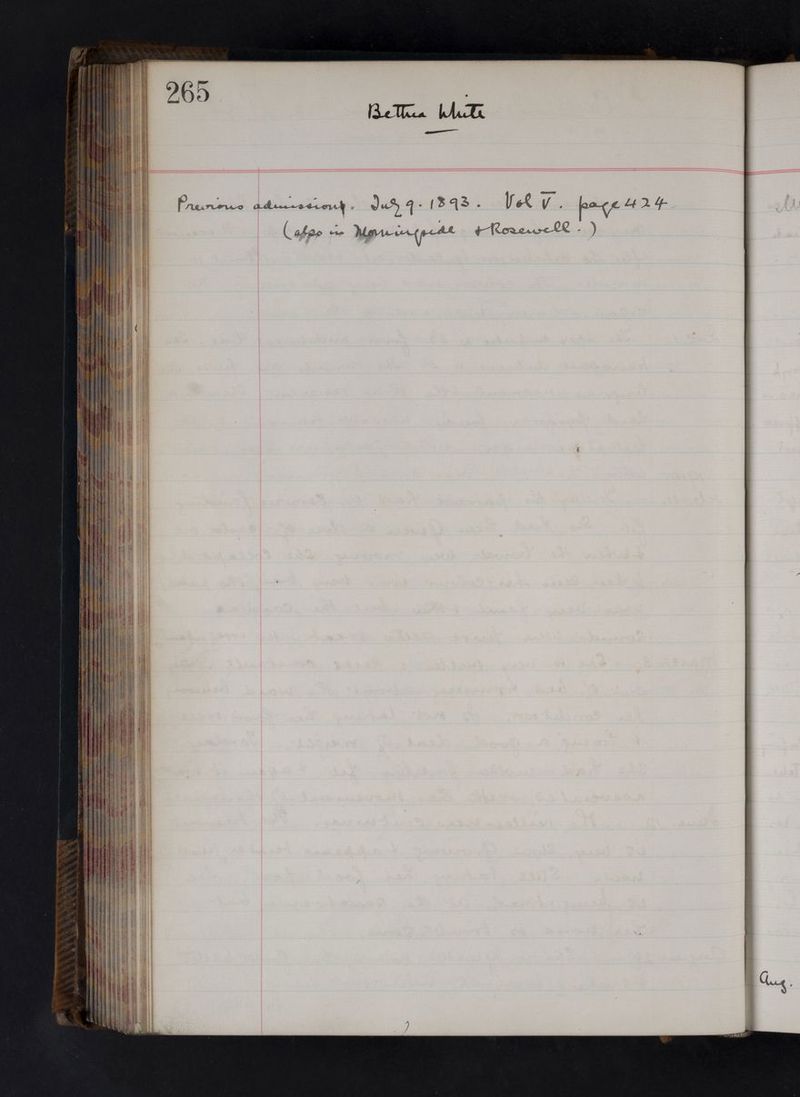 265
Bethia White
Previous admissions. July 9. 1893. Vol V. page 424
(also in Morningside & Rosewell.)
Aug.